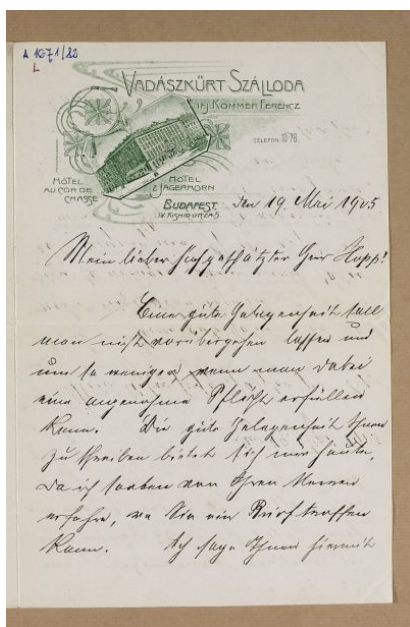 A 1671/22
L
VADÁSZKÜRT SZÁLLODA
IFJ. KOMMER FERENCZ
TELEFON 10-78.
HOTEL
AU COR DE
CHASSE
HOTEL
Z. JÄGERHORN
BUDAPEST,
IV. KISHID-UTCZA 5.
den 19 Mai 1905
Mein lieber hochgeschätzter Herr Hopp!
Eine gute Gelegenheit soll
man nicht vorübergehen lassen und
um so weniger wenn man dabei
eine angenehme Pflicht erfüllen
kann. Die gute Gelegenheit Ihnen
zu schreiben bietet sich mir heute,
da ich soeben von Ihren
erfahre, wo Sie ein Brief treffen
kann. Ich sage Ihnen hiermit